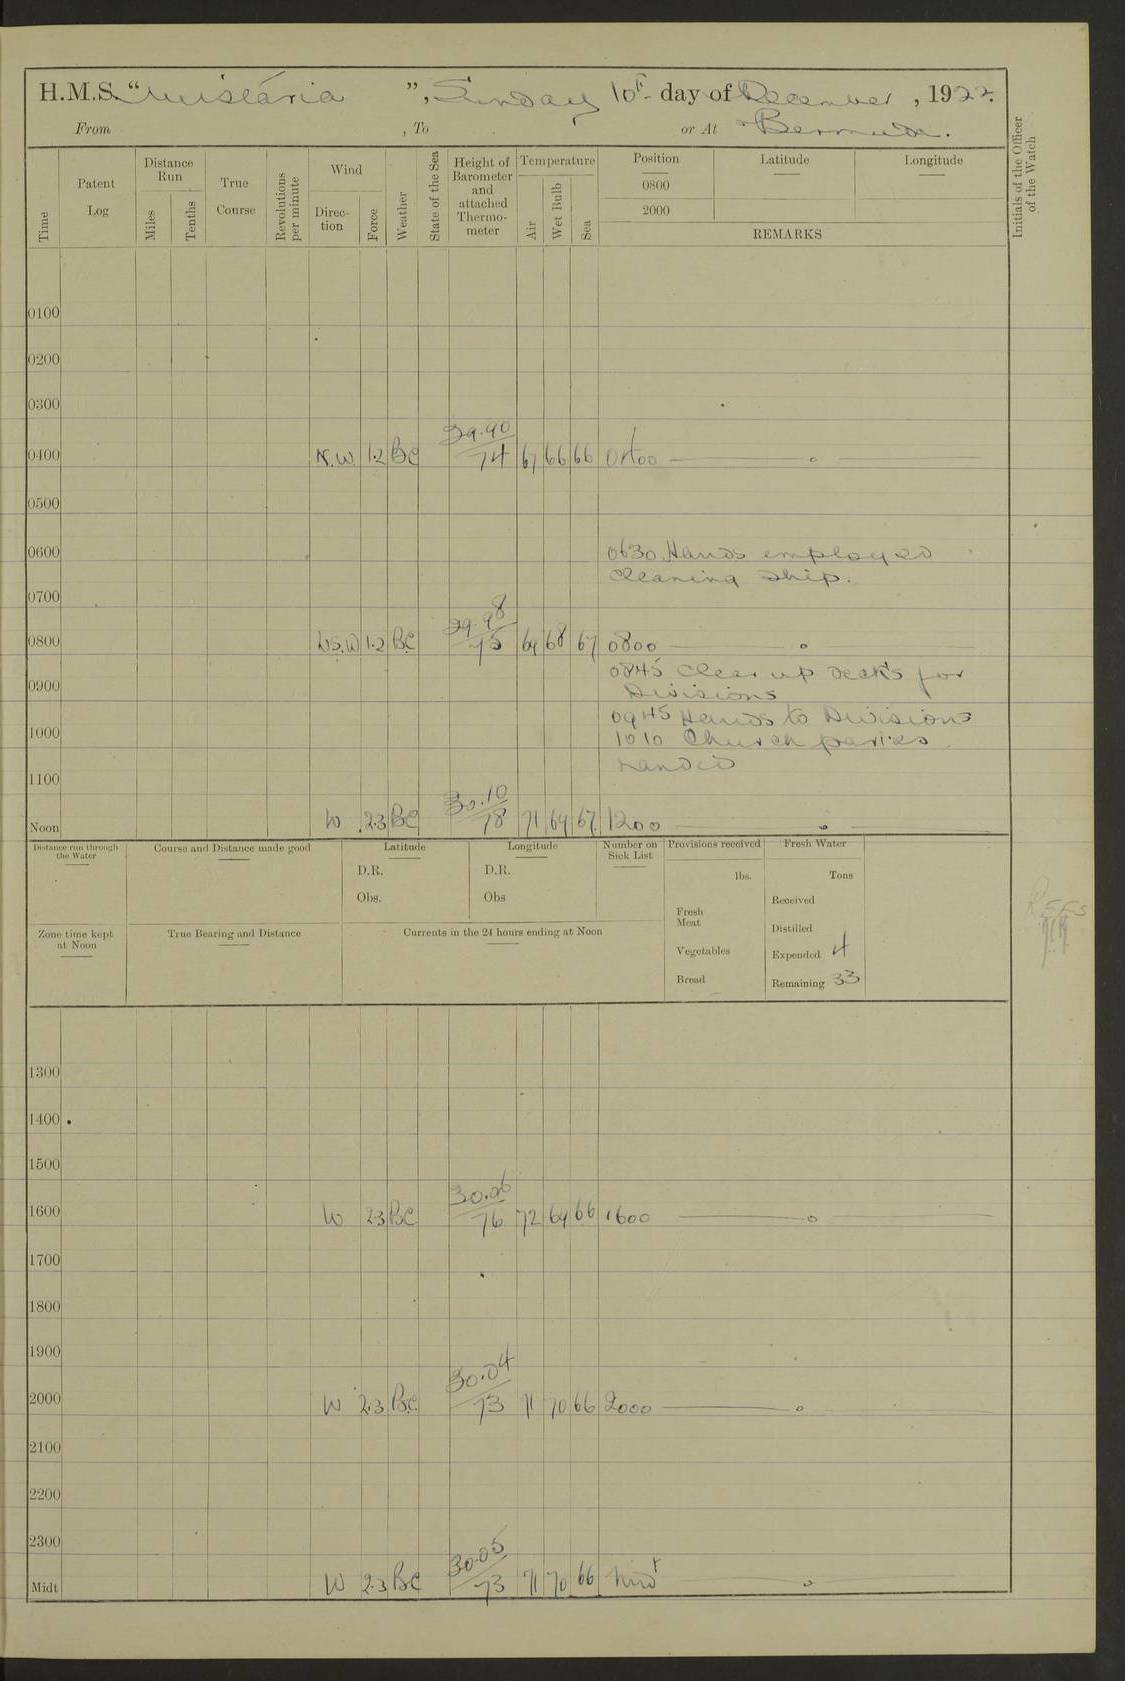 H.M.S. "Wistaria", Sunday 10th day of December, 1922.
From , To or At Bermuda.
Time Patent Log Distance Run Miles Tenths True Course Revolutions per minute Wind Direc- tion Force Weather State of the Sea Height of Barometer and attached Thermo- meter Temperature Air Wet Bulb Sea Position 0800 2000 Latitude Longitude
REMARKS
Initials of the Officer of the Watch
0100
0200
0300
0400 N.W. 1.2 BC 29.90 74 67 66 66 0400
0500
0600 0630 Hands employed
cleaning ship.
0700
0800 W.S.W 1.2 BC 29.98 75 69 68 67 0800
0845 Clear up decks for
0900 Divisions
0945 Hands to Divisions
1000 1010 Church parties
landed
1100
Noon W 2.3 BC 30.10 78 71 69 67 1200
Distance run through the Water Course and Distance made good Latitude D.R. Obs. Longitude D.R. Obs Number on Sick List Provisions received lbs. Fresh Meat Vegetables Bread Fresh Water Tons Received Distilled Expended 4 Remaining 33
Zone time kept at Noon True Bearing and Distance Currents in the 24 hours ending at Noon
1300
1400
1500
1600 W 2.3 BC 30.06 76 72 69 66 1600
1700
1800
1900
2000 W 2.3 BC 30.04 73 71 70 66 2000
2100
2200
2300
Midt W 2.3 BC 30.05 73 71 70 66 Midt